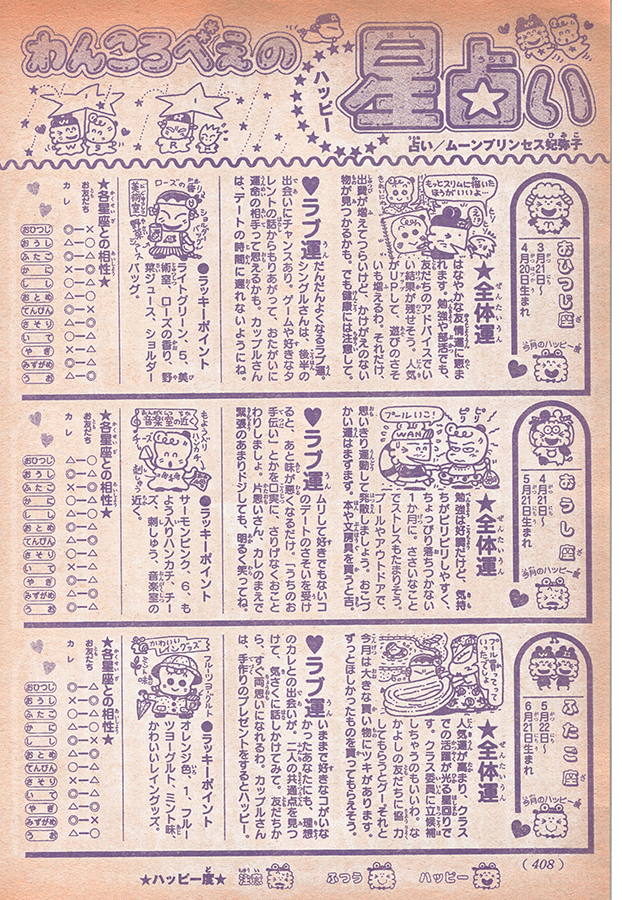 わんころべえの
ハッピー
星占い
占い/ムーンプリンセス妃弥子
おひつじ座
3月21日〜
4月20日生まれ
今月のハッピー度
★全体運
はなやかな友情運に恵ま
れます。勉強や部活でも、
友だちのアドバイスでい
い結果が残せそう。人気
がUPして、遊びのさそ
いも増えるわ。それだけ、
出費が増えてつらいけど、かけがえのない
物が見つかるかも。でも健康には注意して。
もっとスリムに描いた
ほうがいいよー
♥ラブ運
だんだんよくなるラブ運。
シングルさんは、後半の
出会いにチャンスあり。ゲームや好きなタ
レントの話からもりあがって、おたがいに
運命の相手って思えるかも。カップルさん
は、デートの時間に遅れないようにね。
●ラッキーポイント
ライトグリーン、5、美
術室、ローズの香り、野
菜ジュース、ショルダー
バッグ。
ローズの香り
ショルダーバッグ
美術室
野菜ジュース
★各星座との相性★
お友だち
カレ
おひつじ
おうし
ふたご
かに
しし
おとめ
てんびん
さそり
いて
やぎ
みずがめ
うお
おうし座
4月21日〜
5月21日生まれ
今月のハッピー度
★全体運
勉強は好調だけど、気持
ちがピリピリしやすく、
ちょっぴり落ちつかない
1か月に。ささいなこと
でストレスもたまりそう。
プールやアウトドアで、
思いきり運動して発散しましょう。おこづ
かい運はますます。本や文房具を買うと吉。
プールいこ!
ピリピリ
WAN
♥ラブ運
ムリして好きでもないコ
のデートのさそいを受け
ると、あと味が悪くなるだけ。「うちのお
手伝い」とかを口実に、さりげなくおこと
わりしましょ。片思いさん、カレのまえで
緊張のあまりドジしても、明るく笑ってね。
●ラッキーポイント
サーモンピンク、6、も
よう入りハンカチ、チー
ズ、刺しゅう、音楽室の
近く。
音楽室の近く
チーズ
刺しゅう
★各星座との相性★
お友だち
カレ
おひつじ
おうし
ふたご
かに
しし
おとめ
てんびん
さそり
いて
やぎ
みずがめ
うお
ふたご座
5月22日〜
6月21日生まれ
今月のハッピー度
★全体運
人気運が高まり、クラス
での活躍が光る星回りで
す。クラス委員に立候補
しちゃうのもいいわ。な
かよしの友だちに協力
してもらうとグー。それと
今月は大きな買い物にツキがあります。
ずっとほしかったものを買ってもらえそう。
♥ラブ運
いままで好きなコがいな
かったあなたにも、理想
のカレとの出会いが。二人の共通点を見つ
けて、気さくに話しかけてみて。友だちか
ら、すぐ両思いになれるわ。カップルさん
は、手作りのプレゼントをするとハッピー。
●ラッキーポイント
オレンジ色、1、フルー
ツヨーグルト、ミント味、
かわいいレイングッズ。
かわいいレイングッズ
フルーツヨーグルト
ミント味
★各星座との相性★
お友だち
カレ
おひつじ
おうし
ふたご
かに
しし
おとめ
てんびん
さそり
いて
やぎ
みずがめ
うお
★ハッピー度★
注意
ふつう
ハッピー
(408)